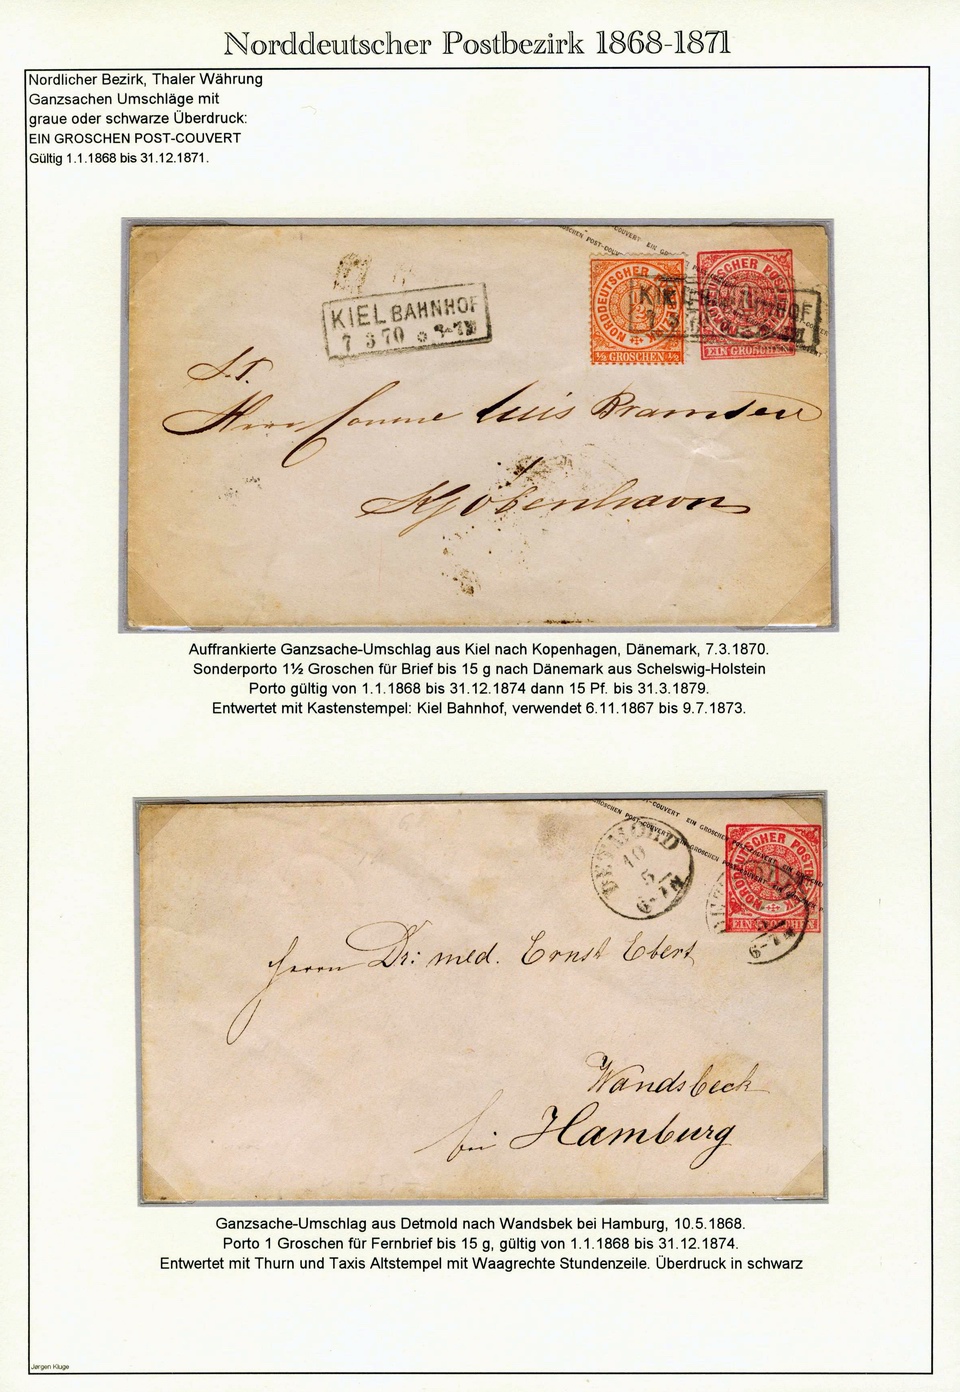 Norddeutscher Postbezirk 1868-1871
Nordlicher Bezirk, Thaler Währung
Ganzsachen Umschläge mit
graue oder schwarze Überdruck:
EIN GROSCHEN POST-COUVERT
Gültig 1.1.1868 bis 31.12.1871.
NORDDEUTSCHER POSTBEZIRK
½ GROSCHEN ½
NORDDEUTSCHER POSTBEZIRK
EIN GROSCHEN
KIEL BAHNHOF
7 3 70
S. T.
Herr Comme Luis Bramsen
Kjöbenhavn
Auffrankierte Ganzsache-Umschlag aus Kiel nach Kopenhagen, Dänemark, 7.3.1870.
Sonderporto 1½ Groschen für Brief bis 15 g nach Dänemark aus Schelswig-Holstein
Porto gültig von 1.1.1868 bis 31.12.1874 dann 15 Pf. bis 31.3.1879.
Entwertet mit Kastenstempel: Kiel Bahnhof, verwendet 6.11.1867 bis 9.7.1873.
EIN GROSCHEN POST-COUVERT
DETMOLD
10
5
6-7 N
NORDDEUTSCHER POSTBEZIRK
EIN GROSCHEN
6-7 N
Herrn Dr: med. Ernst Ebert
Wandsbeck
bei Hamburg
Ganzsache-Umschlag aus Detmold nach Wandsbek bei Hamburg, 10.5.1868.
Porto 1 Groschen für Fernbrief bis 15 g, gültig von 1.1.1868 bis 31.12.1874.
Entwertet mit Thurn und Taxis Altstempel mit Waagrechte Stundenzeile. Überdruck in schwarz
Jørgen Kluge